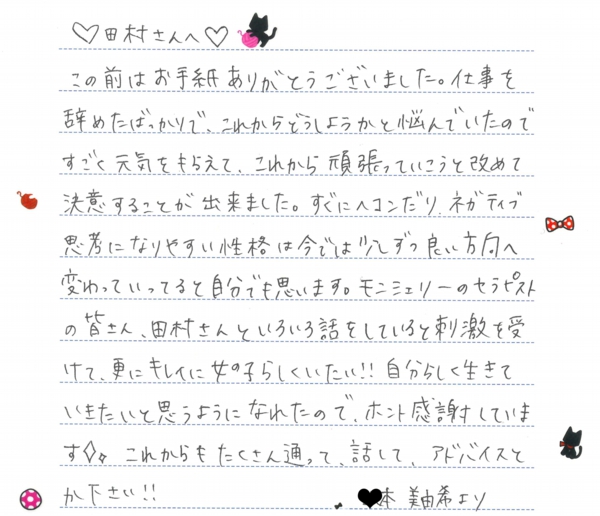 ♡田村さんへ♡
この前はお手紙ありがとうございました。仕事を
辞めたばっかりで、これからどうしようかと悩んでいたので
すごく元気をもらえて、これから頑張っていこうと改めて
決意することが出来ました。すぐにヘコンだり、ネガティブ
思考になりやすい性格は今では少しずつ良い方向へ
変わっていってると自分でも思います。モンシェリーのセラピスト
の皆さん、田村さんといろいろ話をしていると刺激を受
けて、更にキレイに女の子らしくいたい!! 自分らしく生きて
いきたいと思うようになれたので、ホント感謝していま
す◇◇ これからもたくさん通って、話して、アドバイスと
か下さい!!
本 美由希より